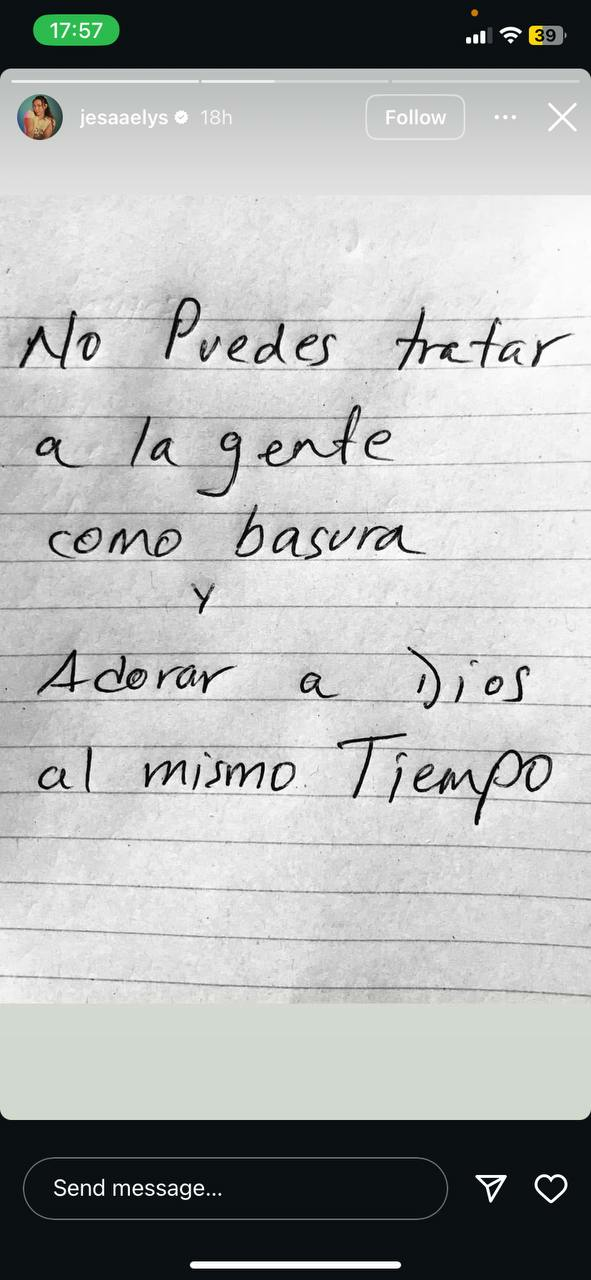 17:57
39
jesaaelys 18h
Follow
No Puedes tratar
a la gente
como basura
y
Adorar a Dios
al mismo Tiempo
Send message...